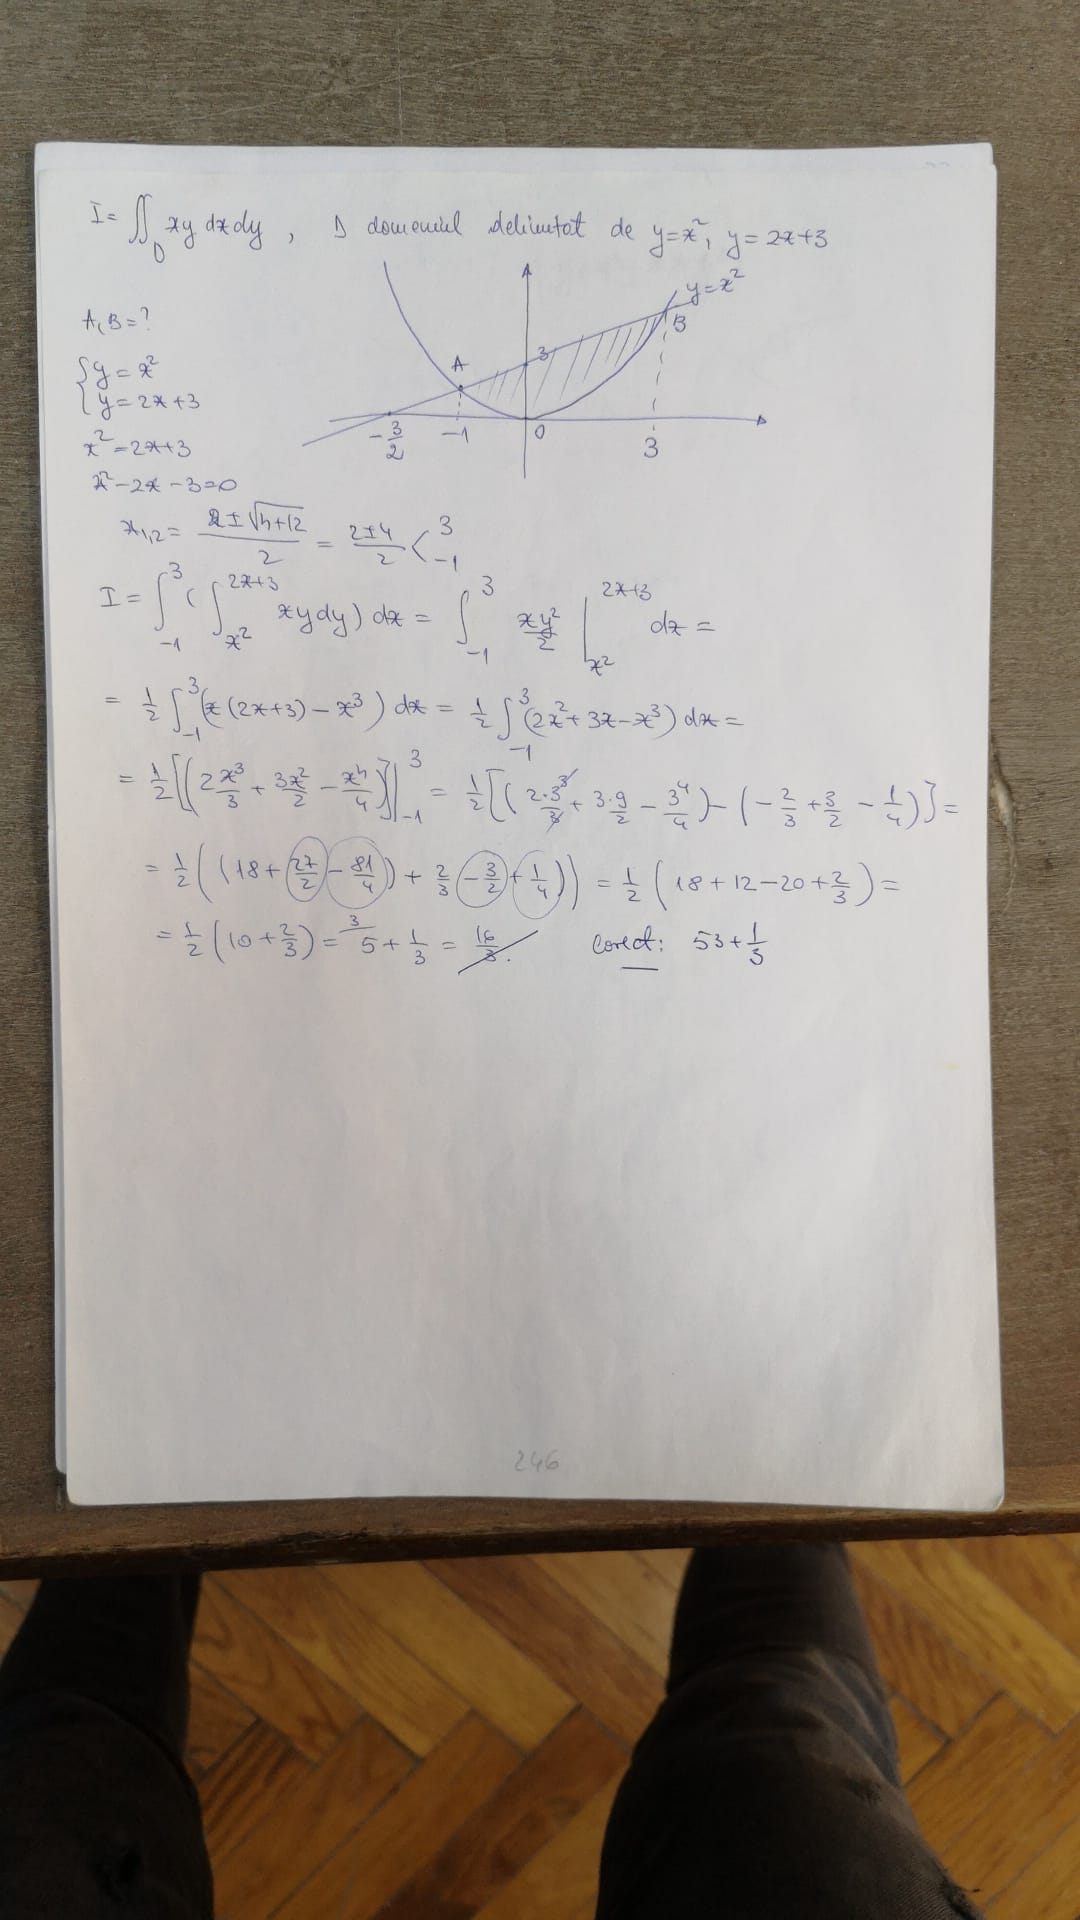 I = ∬_D xy dx dy , D domeniul delimitat de y=x², y=2x+3
y=x²
A, B = ?
B
A
3
{ y = x²
y = 2x+3
-3/2 -1 0 3
x² = 2x+3
x²-2x-3=0
x₁,₂ = (2±√(4+12))/2 = (2±4)/2 < 3 -1
I = ∫_{-1}^{3} ( ∫_{x²}^{2x+3} xy dy ) dx = ∫_{-1}^{3} xy²/2 |_{x²}^{2x+3} dx =
= 1/2 ∫_{-1}^{3} (x(2x+3) - x³) dx = 1/2 ∫_{-1}^{3} (2x²+3x-x³) dx =
= 1/2 [(2 x³/3 + 3x²/2 - x⁴/4)]|_{-1}^{3} = 1/2 [( 2·3³/3 + 3·9/2 - 3⁴/4 ) - ( -2/3 + 3/2 - 1/4 )] =
= 1/2 ( (18 + 27/2 - 81/4) + 2/3 - 3/2 + 1/4 )) = 1/2 ( 18+12-20+2/3 ) =
= 1/2 (10 + 2/3) = 3 5 + 1/3 = 16/3. Corect: 53+1/3
246